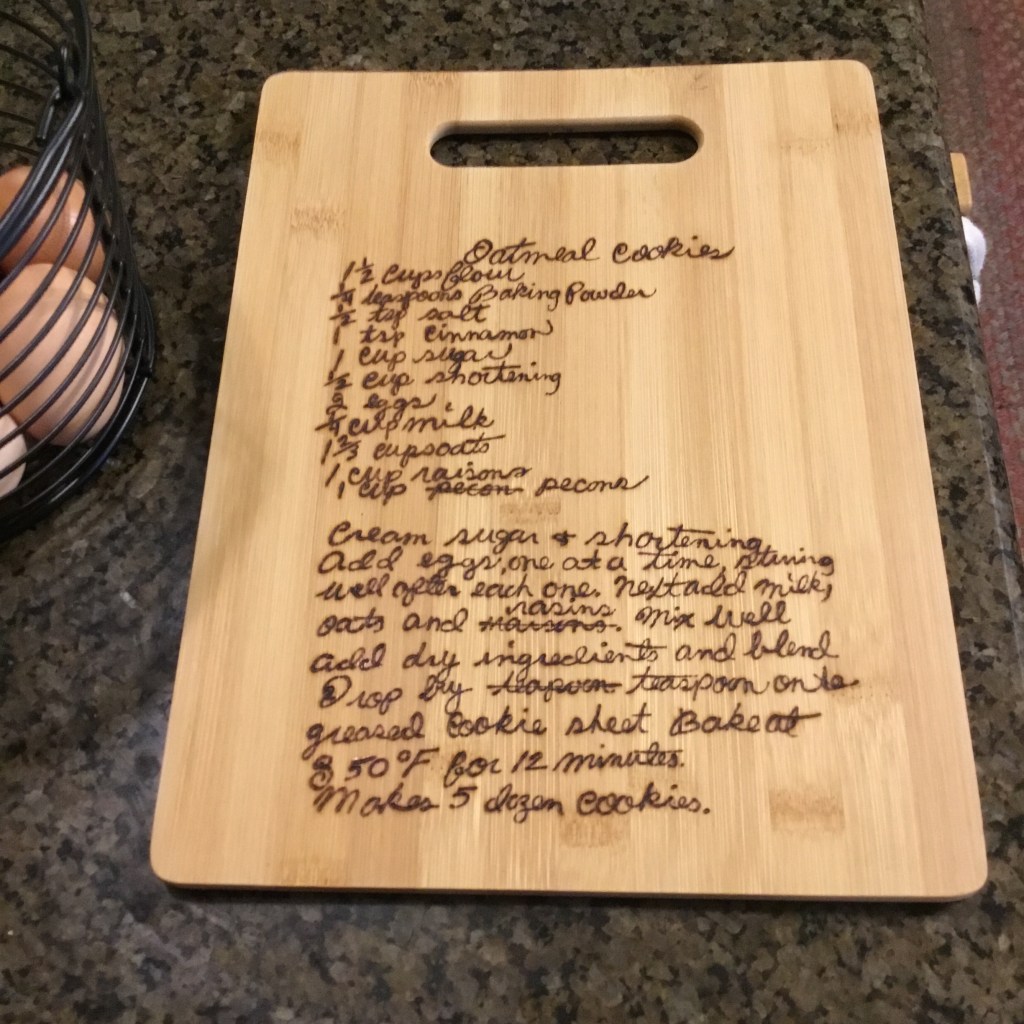 Oatmeal Cookies
1 1/2 cups flour
1/4 teaspoons Baking Powder
1/2 tsp salt
1 tsp cinnamon
1 cup sugar
1/2 cup shortening
2 eggs
1/4 cup milk
1 2/3 cups oats
1 cup raisons
1 cup pecon pecons
Cream sugar & shortening
Add eggs, one at a time, stirring
well after each one. Next add milk,
oats and raisins. Mix well
add dry ingredients and blend
Drop by teaspoon onto
greased Cookie sheet Bake at
350°F for 12 minutes.
Makes 5 dozen cookies.